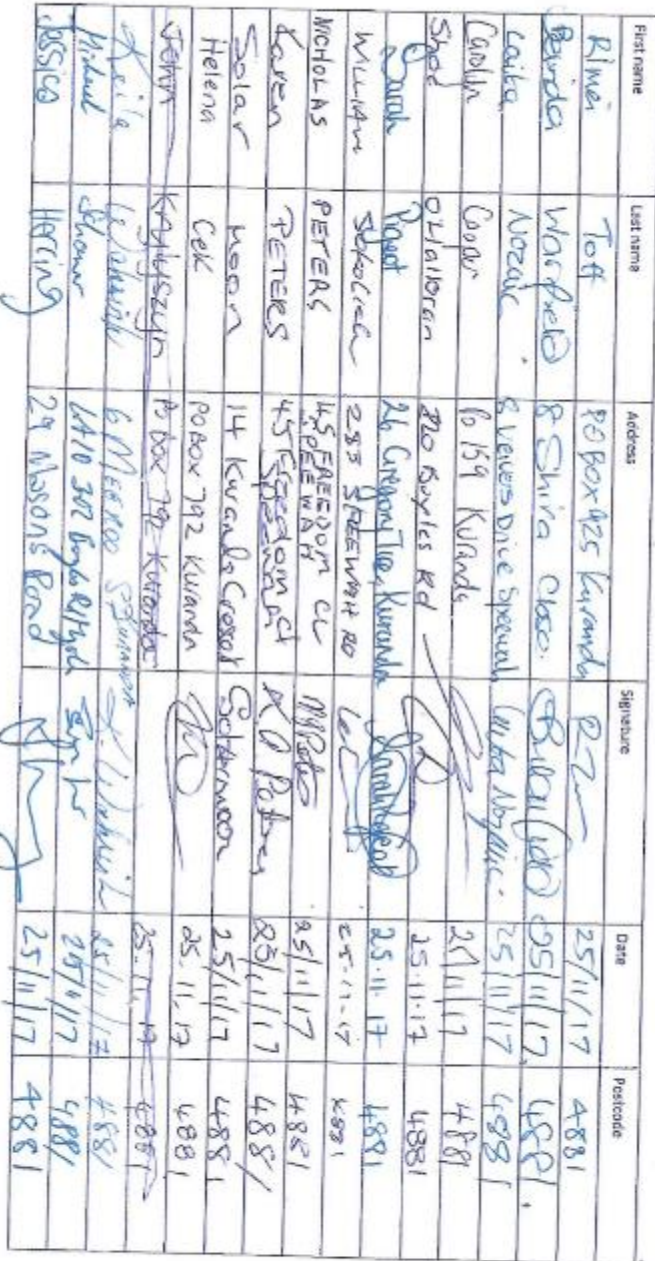 First name Last name Address Signature Date Postcode
Rimei Toft PO BOX 425 Kuranda 25/11/17 4881
Warfield 8 Shiva Close. 25/11/17 4881
Laika Nozaic 8 Drive Speewah Laika Nozaic 25/11/17 4881
Carolyn Cooper Po 159 Kuranda 25/11/17 4881
Shed O'Halloran 820 Boyles Rd 25.11.17 4881
Sarah 26 Gregory Tce, Kuranda 25.11.17 4881
WILLIAM 283 SPEEWAH RD 25-11-17 4881
NICHOLAS PETERS 45 FREEDOM CL SPEEWAH 25/11/17 4881
Karen PETERS 45 Freedom Cl Speewah 25/11/17 4881
Solar Moon 14 Kuranda Crescent Solarmoon 25/11/17 4881
Helena Cek PO BOX 792 Kuranda 25.11.17 4881
John PO BOX 792 Kuranda 25.11.17 4881
Keila 6 25/11/17 4881
Michael 25/11/17 4881
Jessica Herring 29 Masons Road 25/11/17 4881